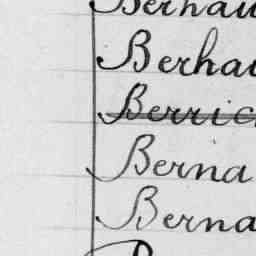 Berhau
Berhau
Berric
Berna
Berna